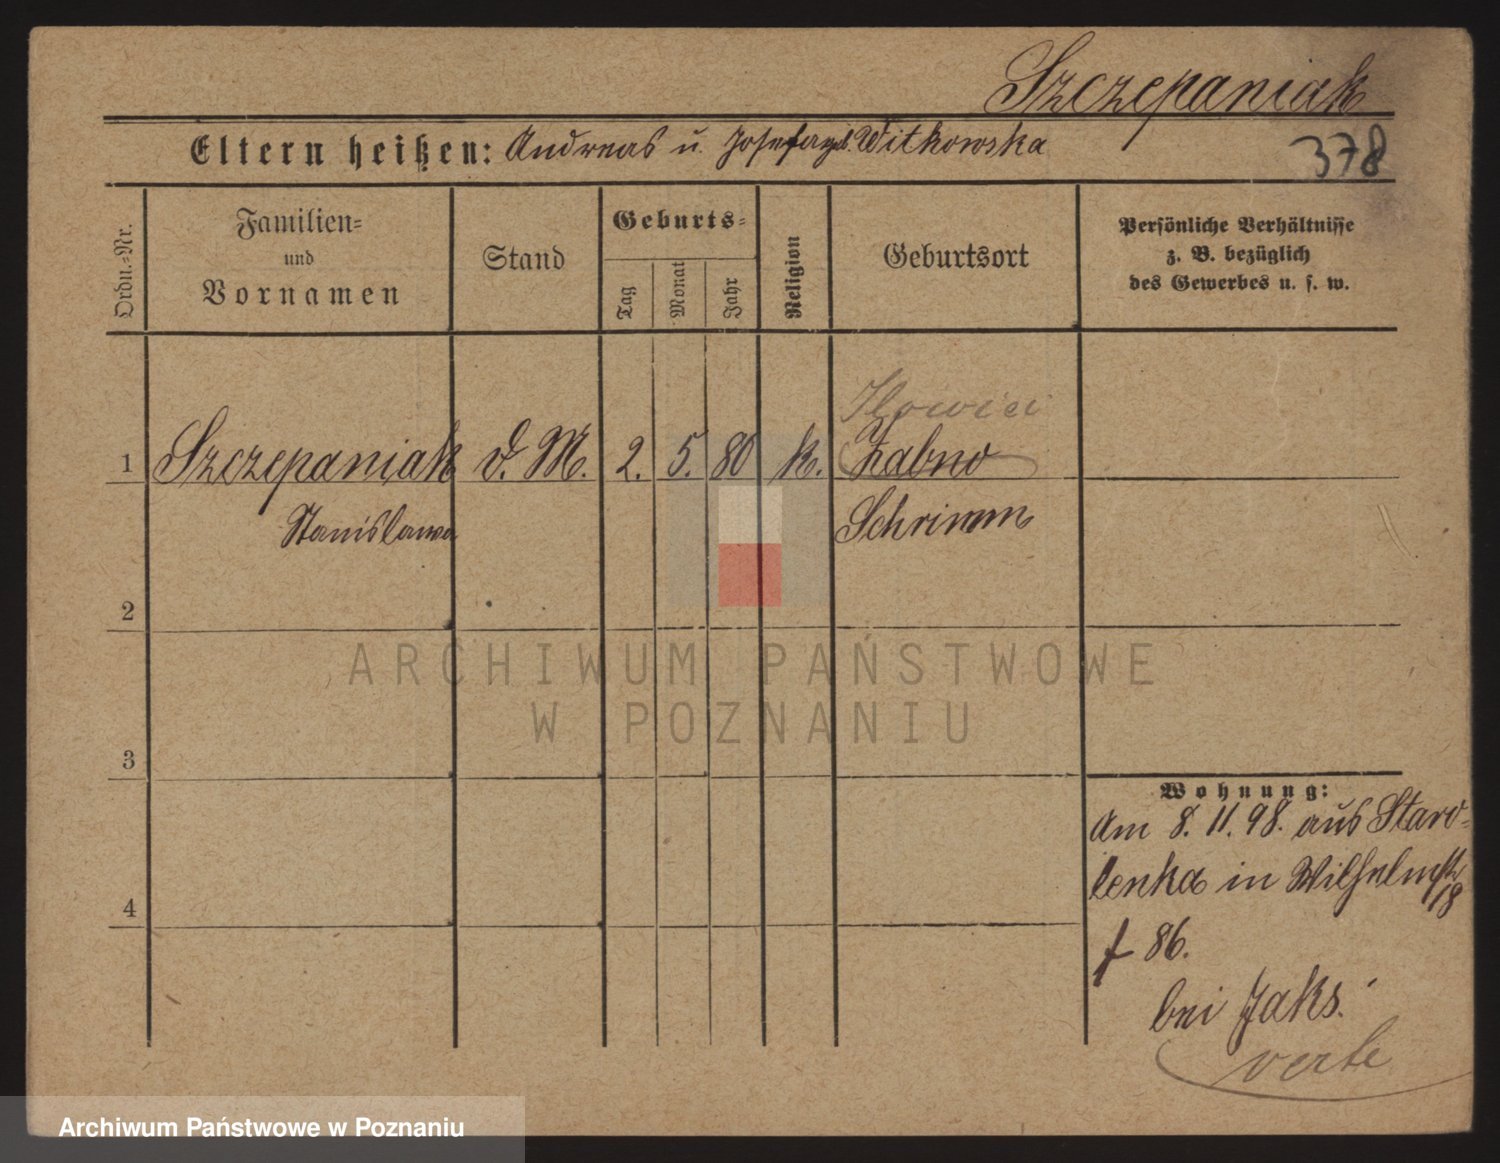 Szczepaniak
Eltern heißen: Andreas u. Josefa geb. Witkowska
378
Ordn.-Nr.
Familien-
und
Vornamen
Stand
Geburts-
Tag
Monat
Jahr
Religion
Geburtsort
Persönliche Verhältnisse
z. B. bezüglich
des Gewerbes u. s. w.
1 Szczepaniak d. M. 2. 5. 80 k. Żabno
Stanislawa Schrimm
2
3
4
Wohnung:
Am 8. 11. 98. aus Staro-
lenka in Wilhelmstr
18
f 86.
bei Jaks.
verte
ARCHIWUM PAŃSTWOWE
W POZNANIU
Archiwum Państwowe w Poznaniu